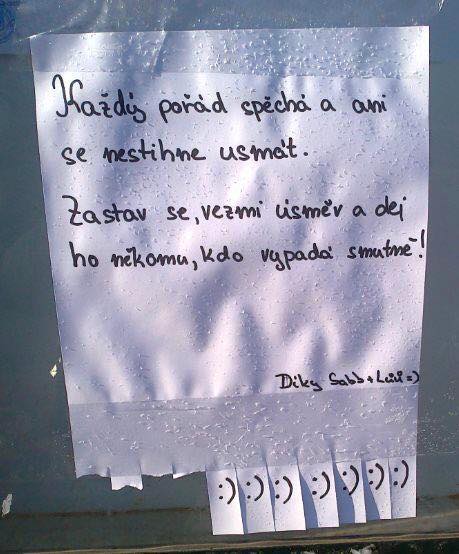 Každý pořád spěchá a ani
se nestihne usmát.
Zastav se, vezmi úsměv a dej
ho někomu, kdo vypadá smutně!
Díky Sabb +
:) :) :) :) :) :) :)